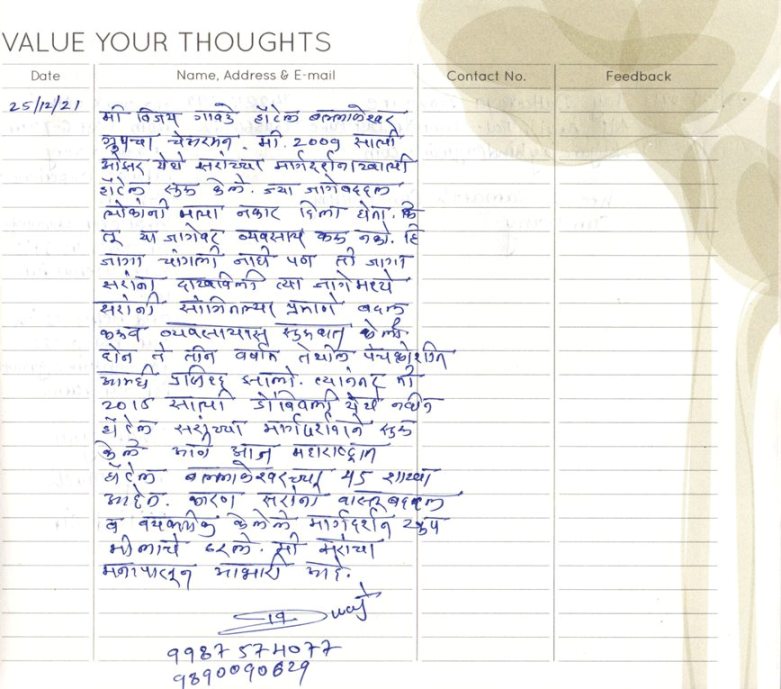 VALUE YOUR THOUGHTS
Date Name, Address & E-mail Contact No. Feedback
25/12/21
मी विजय गावडे हॉटेल बल्लाळेश्वर
ग्रुपचा चेअरमन. मी 2009 साली
येथे सरांच्या मार्गदर्शनाखाली
हॉटेल सुरु केले. ज्या जागेबद्दल
लोकांनी मला नकार दिला होता. कि
तू या जागेवर व्यवसाय करु नको. हि
जागा चांगली नाही पण ती जागा
सरांना दाखविली त्या जागेमध्ये
सरांनी सांगितल्या प्रमाणे बदल
करुन व्यवसायास सुरुवात केली.
दोन ते तीन वर्षात तेथील पंचक्रोशीत
आम्ही प्रसिद्ध झालो. त्यानंतर मी
2015 साली डोंबिवली येथे नवीन
हॉटेल सरांच्या मार्गदर्शनाने सुरु
केले आज महाराष्ट्रात
हॉटेल बल्लाळेश्वरच्या 45 शाखा
आहेत. कारण सरांनी वास्तूबद्दल
व केलेले मार्गदर्शन खुप
मोलाचे ठरले. मी सरांचा
मनापासून आभारी आहे.
9987574077
9890090629